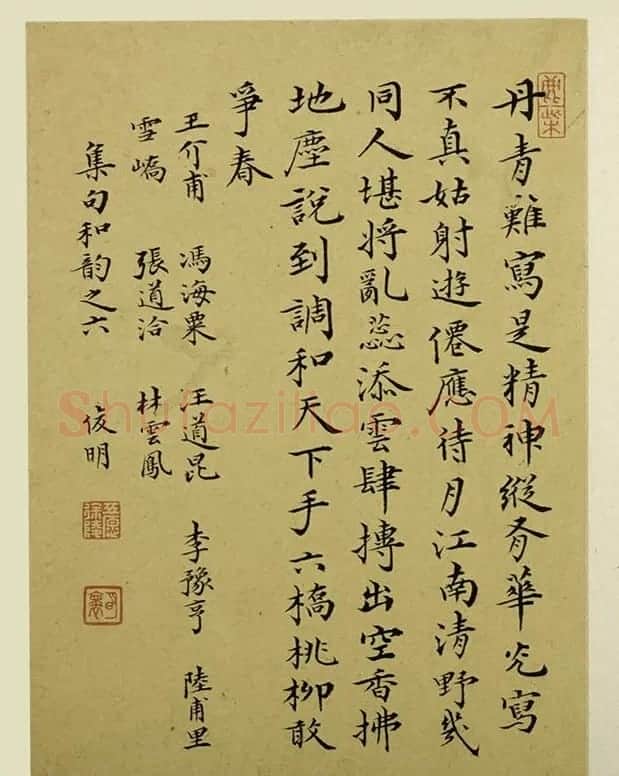 丹青難寫是精神縱有華光寫
不真姑射遊僊應待月江南清野幾
同人堪將亂蕊添雲肆摶出空香拂
地塵說到調和天下手六橋桃柳敢
爭春
王介甫 馮海粟 汪道昆 李豫亨 陸甫里
雪嶠 張道洽 林雲鳳
集句和韵之六
俊明
Shufaziliao.COM